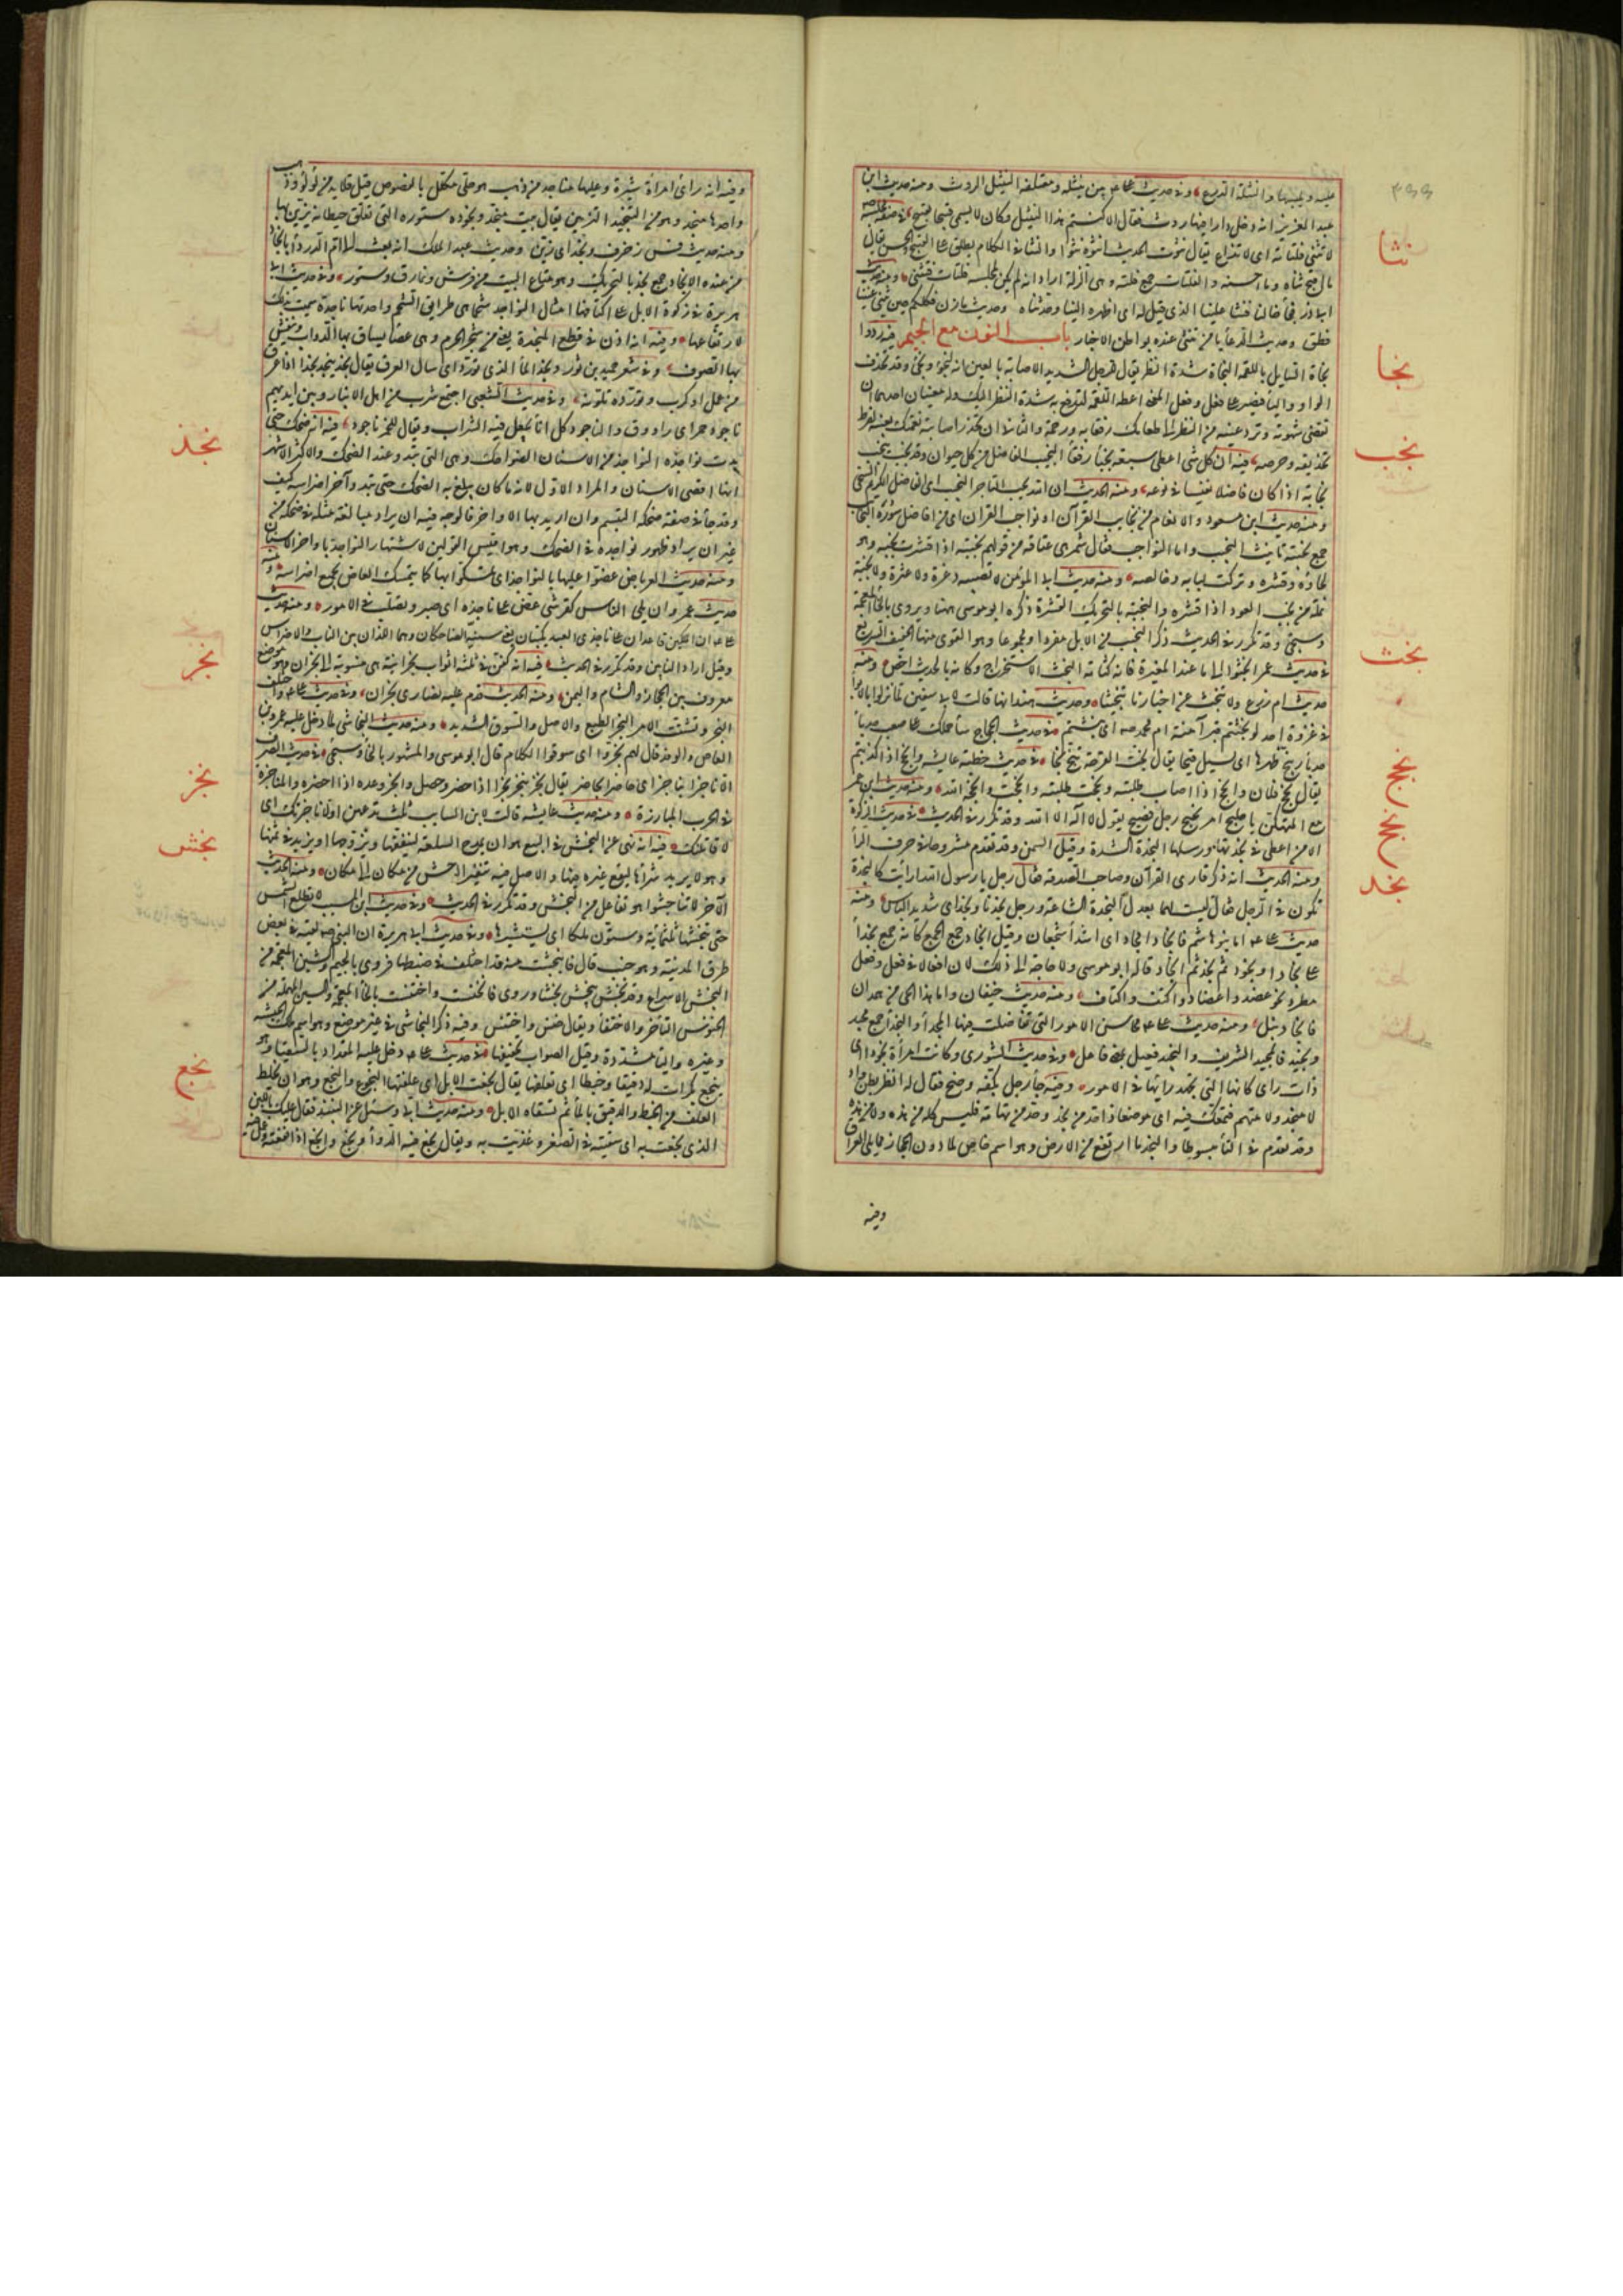 عليه ويلبسها والنثلة الدرع وفي حديث علي بين نثيله ومعتلفه النثيل الروث ومنه حديث ابن
عبد العزيز انه دخل دارا فيها روث فقال الا كنستم هذا النثيل وكان لا يسمي قبيحا بقبيح في صفة مجلسه
لا تنثى فلتاته اي لا تذاع يقال نثوت الحديث انثوه نثوا والنثا في الكلام يطلق على القبيح والحسن يقال
ما اقبح نثاه وما احسنه والفلتات جمع فلتة وهي الزلة اراد انه لم يكن لمجلسه فلتات فتنثى ومنه حديث
ابي ذر فجاء خالنا فنثا علينا الذي قيل له اي اظهره الينا وحدثناه وحديث مازن وكلكم حين ينثى عيبنا
فطن وحديث الدعاء يا من تنثى عنده بواطن الاخبار باب النون مع الجيم فيه ردوا
نجاة السايل باللقمة النجاة شدة النظر يقال للرجل الشديد الاصابة بالعين انه لنجوء ونجئ وقد تحذف
الواو والياء فيصير على فعل وفعل المعنى اعطه اللقمة لتدفع به شدة النظر اليك وله معنيان احدهما ان
تقضي شهوته وترد عينه من النظر الى طعامك رفقا به ورحمة والثاني ان تحذر اصابته نعمتك بعينه لفرط
تحديقه وحرصه فيه ان كل نبي اعطي سبعة نجباء رفقاء النجيب الفاضل من كل حيوان وقد نجب ينجب
نجابة اذا كان فاضلا نفيسا في نوعه ومنه الحديث ان الله يحب التاجر النجيب اي الفاضل الكريم السخي
ومنه حديث ابن مسعود والانعام من نجايب القرآن او نواجب القران اي من افاضل سوره فالنجايب
جمع نجيبة تانيث النجيب واما النواجب فقال شمر هي عتاقه من قولهم نجبته اذا قشرت نجبه وهو
لحاؤه وقشره وتركت لبابه وخالصه ومنه حديث ابي المؤمن لا تصيبه ذعرة ولا عثرة ولا نجبة
نملة من نجب العود اذا قشره والنجبة بالتحريك القشرة ذكره ابو موسى ههنا ويروى بالخاء المعجمة
وسيجئ وقد تكرر في الحديث ذكر النجيب من الابل مفردا ومجموعا وهو القوي منها الخفيف السريع
في حديث عمر انجثوا لي ما عند المغيرة فانه كتامة النجث الاستخراج وكانه بالحديث اخص ومنه
حديث ام زرع ولا تنجث عن اخبارنا تنجيثا وحديث هند انها قالت لابي سفين لما نزلوا بالابواء
في غزوة احد لو نجثتم قبر آمنة ام محمد صه اي نبشتم في حديث الحجاج ساحملك على صعب حدباء
حدبار ينج ظهرها اي يسيل قيحا يقال نجت القرحة تنج نجا في حديث خطبة عايشة وانجح اذ اكديتم
يقال نجح فلان وانجح اذا اصاب طلبته ونجحت طلبته وانجحت وانجحه الله ومنه حديث ابن عمر
مع المتهكن يا جليح امر نجيح رجل فصيح يقول لا اله الا الله وقد تكرر في الحديث في حديث الزكوة
الا من اعطى في نجدتها ورسلها النجدة الشدة وقيل السمن وقد تقدم مشروحا في حرف الراء
ومنه الحديث انه ذكر قاري القرآن وصاحب الصدقة فقال رجل يا رسول الله ارايت النجدة
تكون في الرجل فقال ليست لهما بعدل النجدة الشجاعة ورجل نجد ونجد اي شديد الباس ومنه
حديث علي اما بنو هاشم فانجاد امجاد اي اشداء شجعان وقيل انجاد جمع الجمع كانه جمع نجدا
على نجاد او نجود ثم نجد ثم انجاد قاله ابو موسى ولا حاجة الى ذلك لان افعالا في فعل وفعل
مطرد نحو عضد واعضاد وكتف واكتاف ومنه حديث خيفان واما هذا الحي من همدان
فانجاد بسل ومنه حديث علي محاسن الامور التي تفاضلت فيها المجداء والنجداء جمع مجيد
ونجيد فالمجيد الشريف والنجيد فعيل بمعنى فاعل وفي حديث الشورى وكانت امراة نجودا اي
ذات راي كانها التي تجهد رايها في الامور وفيه جاء رجل بكفه وضح فقال له انظر بطن واد
لا منجد ولا متهم فتمعك فيه اي موضعا ذا حد من نجد وحد من تهامة فليس كله من هذه ولا من هذه
وقد تقدم في التاء مبسوطا والنجد ما ارتفع من الارض وهو اسم خاص لما دون الحجاز مما يلي العراق
وفيه
نثا
نجا
نجب
نجث
نجج
نجح
نجد
وفيه انه راى امراة شيرة وعليها مناجد من ذهب هو حلي مكلل بالفصوص وقيل قلايد من لؤلؤ وذهب
واحدها منجد وهو من التنجيد التزيين يقال بيت منجد ونجوده ستوره التي تعلق على حيطانه يزين بها
ومنه حديث قس زخرف ونجد اي زين وحديث عبد الملك انه بعث الى ام الدرداء بانجاد
من عنده الانجاد جمع نجد بالتحريك وهو متاع البيت من فرش ونمارق وستور وفي حديث ابي
هريرة في زكوة الابل على اكتافها امثال النواجد شحما هي طرايق الشحم واحدتها ناجدة سميت بذلك
لارتفاعها وفيه انه اذن في قطع المنجدة يعني من شجر الحرم وهي عصا يساق بها الدواب وينفش
بها الصوف وفي شعر حميد بن ثور ونجد الماء الذي توردا اي سال العرق يقال نجد ينجد نجدا اذا عرق
من عمل او كرب وتورده تلونه وفي حديث الشعبي اجتمع شرب من اهل الانبار وبين ايديهم
ناجود خمر اي راووق والناجود كل اناء يجعل فيه الشراب ويقال للخمر ناجود فيه انه ضحك حتى
بدت نواجذه النواجذ من الاسنان الضواحك وهي التي تبدو عند الضحك والاكثر الاشهر
انها اقصى الاسنان والمراد الاول لانه ما كان يبلغ به الضحك حتى تبدو آخر اضراسه كيف
وقد جاء في صفة ضحكه التبسم وان اريد بها الاواخر فالوجه فيه ان يراد مبالغة مثله في ضحكه من
غير ان يراد ظهور نواجذه في الضحك وهو اقيس القولين لاشتهار النواجذ باواخر الاسنان
ومنه حديث العرباض عضوا عليها بالنواجذ اي تمسكوا بها كما يتمسك العاض بجميع اضراسه ومنه
حديث عمر ولن يلي الناس كقرشي عض على ناجذه اي صبر وتصلب في الامور ومنه حديث
علي ان الملكين قاعدان على ناجذي العبد يكتبان يعني سنيه الضاحكان وهما اللذان بين الناب والاضراس
وقيل اراد النابين وقد تكرر في الحديث فيه انه كفن في ثلثة اثواب نجرانية هي منسوبة الى نجران وهو موضع
معروف بين الحجاز والشام واليمن ومنه الحديث قدم عليه نصارى نجران وفي حديث علي واختلف
النجر وتشتت الامر النجر الطبع والاصل والسوق الشديد ومنه حديث النجاشي لما دخل عليه عمرو بن
العاص والوفد قال لهم نجروا اي سوقوا الكلام قال ابو موسى والمشهور بالخاء وسيجئ في حديث الصرف
الا ناجزا بناجز اي حاضرا بحاضر يقال نجز ينجز نجزا اذا حضر وحصل وانجز وعده اذا احضره والمناجزة
في الحرب المبارزة ومنه حديث عايشة قالت لابن السايب ثلث تدعهن او لاناجزنك اي
لاقاتلنك فيه انه نهى عن النجش في البيع هو ان يمدح السلعة لينفقها ويروجها او يزيد في ثمنها
وهو لا يريد شراءها ليقع غيره فيها والاصل فيه تنفير الوحش من مكان الى مكان ومنه الحديث
الآخر لا تناجشوا هو تفاعل من النجش وقد تكرر في الحديث وفي حديث ابن المسيب لا تطلع الشمس
حتى ينجشها ثلثمائة وستون ملكا اي يستثيرها وفي حديث ابي هريرة ان النبي صه لقيه في بعض
طرق المدينة وهو جنب قال فانتجشت منه قد اختلف في ضبطها فروي بالجيم والشين المعجمة من
النجش الاسراع وقد نجش ينجش نجشا وروي فانخنست واختنست بالخاء المعجمة والسين المهملة من
الخنوس التاخر والاختفاء ويقال خنس واختنس وفيه ذكر النجاشي في غير موضع وهو اسم ملك الحبشة
وغيره والياء مشددة وقيل الصواب تخفيفها في حديث علي دخل عليه المقداد بالسقيا وهو
ينجع بكرات له دقيقا وخبطا اي تعلفها يقال نجعت الابل اي علفتها النجوع والنجيع وهو ان يخلط
العلف من الخبط والدقيق بالماء ثم تسقاه الابل ومنه حديث ابي وسئل عن النبيذ فقال عليك باللبن
الذي نجعت به اي سقيته في الصغر وغذيت به ويقال نجع فيه الدواء ونجع وانجع اذا نفعه وعمل فيه
نجذ
نجر
نجز
نجش
نجع